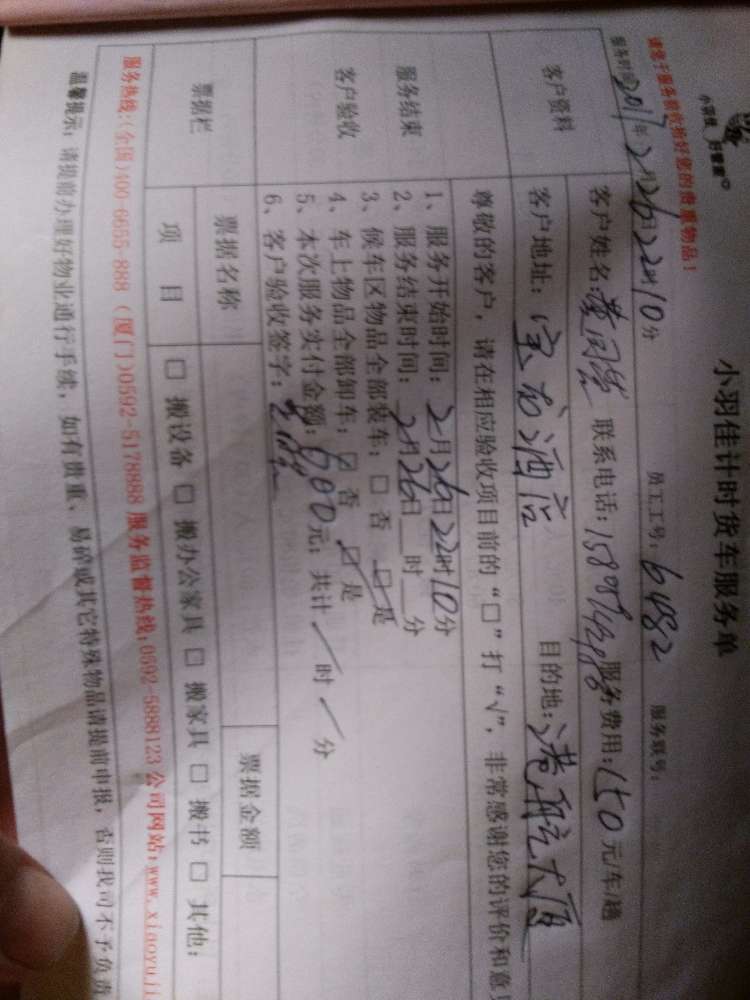 小羽佳 好管家
小羽佳计时货车服务单
请您于服务前收拾好您的贵重物品!
服务时间:2017年2月26日22时10分 员工工号: 6482 服务联号:
客户资料
客户姓名: 联系电话: 服务费用:150元/车/趟
客户地址: 酒店 目的地:港航大厦
服务结束
客户验收
尊敬的客户,请在相应验收项目前的“□”打“√”,非常感谢您的评价和意见
1、服务开始时间:2月26日22时10分
2、服务结束时间:2月26日__时__分
3、候车区物品全部装车:□ 否 ☑ 是
4、车上物品全部卸车:☑ 否 ☑ 是
5、本次服务实付金额:600元;共计/时/分
6、客户验收签字:
票据栏 票据名称 票据金额
项 目 □ 搬设备 □ 搬办公家具 □ 搬家具 □ 搬书 □ 其他:
服务热线:(全国)400-6655-888 (厦门)0592-5178888 服务监督热线:0592-5888123 公司网站:www.xiaoyuji
温馨提示:请提前办理好物业通行手续,如有贵重、易碎或其它特殊物品请提前申报,否则我司不予负责